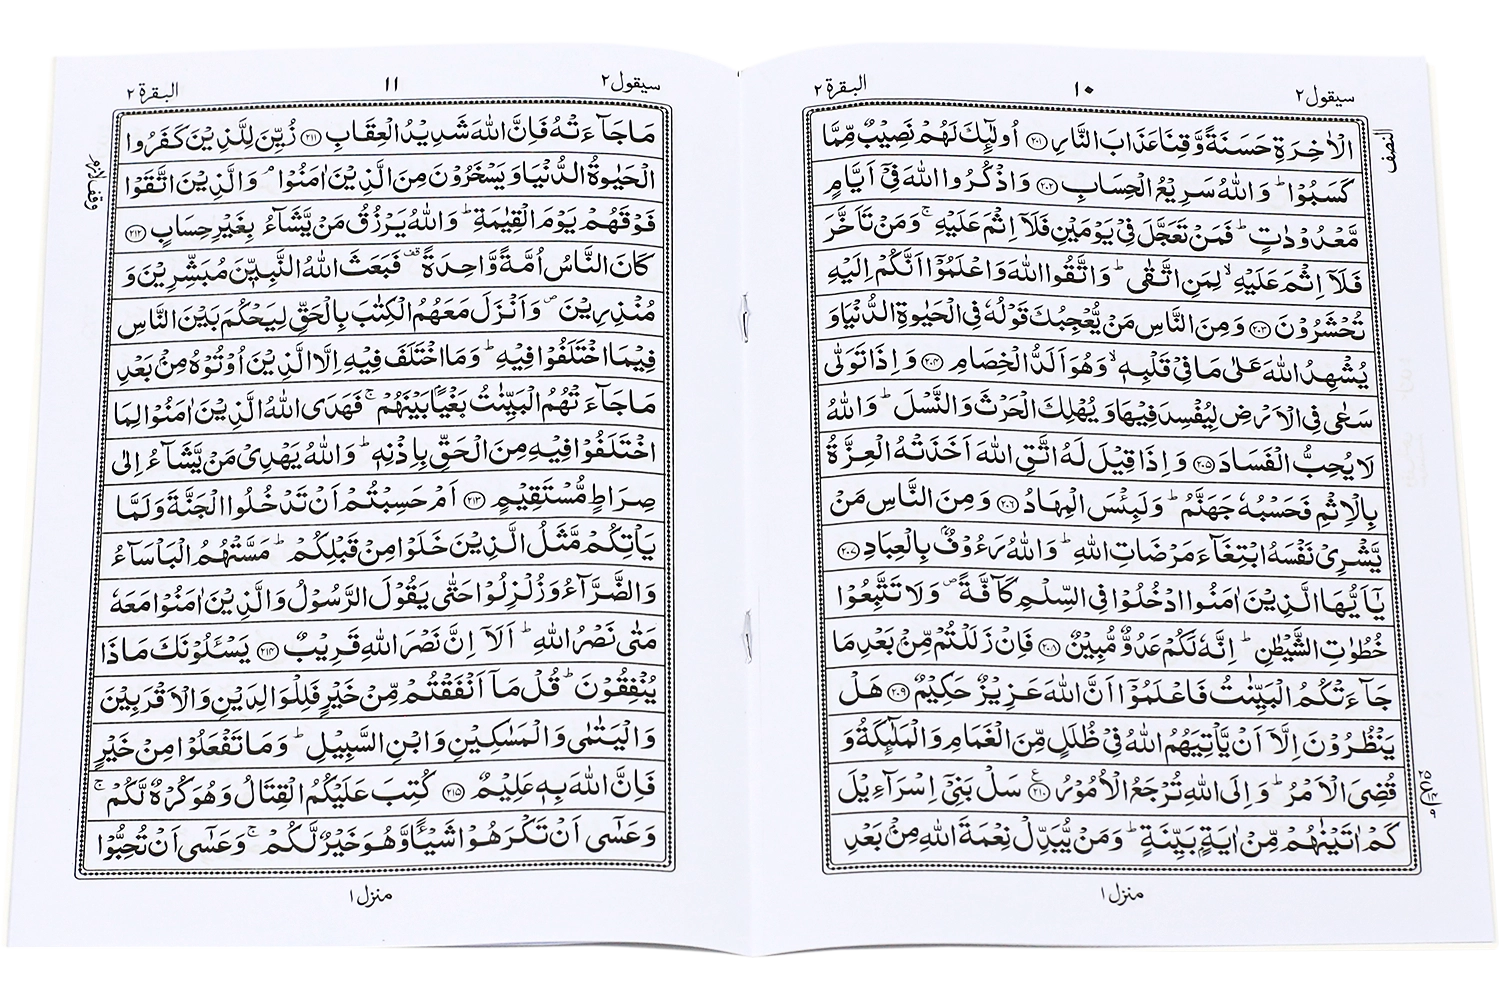 سيقول ٢
١٠
البقرة ٢
الۡاٰخِرَةِ حَسَنَةً وَّقِنَا عَذَابَ النَّارِ ﴿۲۰۱﴾ اُولٰٓئِكَ لَهُمۡ نَصِيۡبٌ مِّمَّا
النصف
كَسَبُوۡا ؕ وَاللّٰهُ سَرِيۡعُ الۡحِسَابِ ﴿۲۰۲﴾ وَاذۡكُرُوا اللّٰهَ فِىۡٓ اَيَّامٍ
مَّعۡدُوۡدٰتٍ ؕ فَمَنۡ تَعَجَّلَ فِىۡ يَوۡمَيۡنِ فَلَاۤ اِثۡمَ عَلَيۡهِ ۚ وَمَنۡ تَاَخَّرَ
فَلَاۤ اِثۡمَ عَلَيۡهِ ۙ لِمَنِ اتَّقٰى ؕ وَاتَّقُوا اللّٰهَ وَاعۡلَمُوۡٓا اَنَّكُمۡ اِلَيۡهِ
تُحۡشَرُوۡنَ ﴿۲۰۳﴾ وَمِنَ النَّاسِ مَنۡ يُّعۡجِبُكَ قَوۡلُهٗ فِى الۡحَيٰوةِ الدُّنۡيَا وَ
يُشۡهِدُ اللّٰهَ عَلٰى مَا فِىۡ قَلۡبِهٖ ۙ وَهُوَ اَلَدُّ الۡخِصَامِ ﴿۲۰۴﴾ وَاِذَا تَوَلّٰى
سَعٰى فِى الۡاَرۡضِ لِيُفۡسِدَ فِيۡهَا وَيُهۡلِكَ الۡحَرۡثَ وَالنَّسۡلَ ؕ وَاللّٰهُ
لَا يُحِبُّ الۡفَسَادَ ﴿۲۰۵﴾ وَاِذَا قِيۡلَ لَهُ اتَّقِ اللّٰهَ اَخَذَتۡهُ الۡعِزَّةُ
بِالۡاِثۡمِ فَحَسۡبُهٗ جَهَنَّمُ ؕ وَلَبِئۡسَ الۡمِهَادُ ﴿۲۰۶﴾ وَمِنَ النَّاسِ مَنۡ
يَّشۡرِىۡ نَفۡسَهُ ابۡتِغَآءَ مَرۡضَاتِ اللّٰهِ ؕ وَاللّٰهُ رَءُوۡفٌۢ بِالۡعِبَادِ ﴿۲۰۷﴾
يٰٓاَيُّهَا الَّذِيۡنَ اٰمَنُوا ادۡخُلُوۡا فِى السِّلۡمِ كَآفَّةً ۖ وَلَا تَتَّبِعُوۡا
خُطُوٰتِ الشَّيۡطٰنِ ؕ اِنَّهٗ لَكُمۡ عَدُوٌّ مُّبِيۡنٌ ﴿۲۰۸﴾ فَاِنۡ زَلَلۡتُمۡ مِّنۡۢ بَعۡدِ مَا
جَآءَتۡكُمُ الۡبَيِّنٰتُ فَاعۡلَمُوۡٓا اَنَّ اللّٰهَ عَزِيۡزٌ حَكِيۡمٌ ﴿۲۰۹﴾ هَلۡ
يَنۡظُرُوۡنَ اِلَّاۤ اَنۡ يَّاۡتِيَهُمُ اللّٰهُ فِىۡ ظُلَلٍ مِّنَ الۡغَمَامِ وَالۡمَلٰٓئِكَةُ وَ
قُضِىَ الۡاَمۡرُ ؕ وَاِلَى اللّٰهِ تُرۡجَعُ الۡاُمُوۡرُ ﴿۲۱۰﴾ سَلۡ بَنِىۡٓ اِسۡرَآءِيۡلَ
٢٥
ع ١٤
٩
كَمۡ اٰتَيۡنٰهُمۡ مِّنۡ اٰيَةٍۢ بَيِّنَةٍ ؕ وَمَنۡ يُّبَدِّلۡ نِعۡمَةَ اللّٰهِ مِنۡۢ بَعۡدِ
منزل ١
سيقول ٢
١١
البقرة ٢
مَا جَآءَتۡهُ فَاِنَّ اللّٰهَ شَدِيۡدُ الۡعِقَابِ ﴿۲۱۱﴾ زُيِّنَ لِلَّذِيۡنَ كَفَرُوا
الۡحَيٰوةُ الدُّنۡيَا وَيَسۡخَرُوۡنَ مِنَ الَّذِيۡنَ اٰمَنُوۡا ۘ وَالَّذِيۡنَ اتَّقَوۡا
وقف لازم
فَوۡقَهُمۡ يَوۡمَ الۡقِيٰمَةِ ؕ وَاللّٰهُ يَرۡزُقُ مَنۡ يَّشَآءُ بِغَيۡرِ حِسَابٍ ﴿۲۱۲﴾
كَانَ النَّاسُ اُمَّةً وَّاحِدَةً قف فَبَعَثَ اللّٰهُ النَّبِيّٖنَ مُبَشِّرِيۡنَ وَ
مُنۡذِرِيۡنَ ۖ وَاَنۡزَلَ مَعَهُمُ الۡكِتٰبَ بِالۡحَقِّ لِيَحۡكُمَ بَيۡنَ النَّاسِ
فِيۡمَا اخۡتَلَفُوۡا فِيۡهِ ؕ وَمَا اخۡتَلَفَ فِيۡهِ اِلَّا الَّذِيۡنَ اُوۡتُوۡهُ مِنۡۢ بَعۡدِ
مَا جَآءَتۡهُمُ الۡبَيِّنٰتُ بَغۡيًۢا بَيۡنَهُمۡ ۚ فَهَدَى اللّٰهُ الَّذِيۡنَ اٰمَنُوۡا لِمَا
اخۡتَلَفُوۡا فِيۡهِ مِنَ الۡحَقِّ بِاِذۡنِهٖ ؕ وَاللّٰهُ يَهۡدِىۡ مَنۡ يَّشَآءُ اِلٰى
صِرَاطٍ مُّسۡتَقِيۡمٍ ﴿۲۱۳﴾ اَمۡ حَسِبۡتُمۡ اَنۡ تَدۡخُلُوا الۡجَنَّةَ وَلَمَّا
يَاۡتِكُمۡ مَّثَلُ الَّذِيۡنَ خَلَوۡا مِنۡ قَبۡلِكُمۡ ؕ مَسَّتۡهُمُ الۡبَاۡسَآءُ
وَالضَّرَّآءُ وَزُلۡزِلُوۡا حَتّٰى يَقُوۡلَ الرَّسُوۡلُ وَالَّذِيۡنَ اٰمَنُوۡا مَعَهٗ
مَتٰى نَصۡرُ اللّٰهِ ؕ اَلَاۤ اِنَّ نَصۡرَ اللّٰهِ قَرِيۡبٌ ﴿۲۱۴﴾ يَسۡـَٔلُوۡنَكَ مَاذَا
يُنۡفِقُوۡنَ ؕ قُلۡ مَاۤ اَنۡفَقۡتُمۡ مِّنۡ خَيۡرٍ فَلِلۡوَالِدَيۡنِ وَالۡاَقۡرَبِيۡنَ
وَالۡيَتٰمٰى وَالۡمَسٰكِيۡنِ وَابۡنِ السَّبِيۡلِ ؕ وَمَا تَفۡعَلُوۡا مِنۡ خَيۡرٍ
فَاِنَّ اللّٰهَ بِهٖ عَلِيۡمٌ ﴿۲۱۵﴾ كُتِبَ عَلَيۡكُمُ الۡقِتَالُ وَهُوَ كُرۡهٌ لَّكُمۡ ۚ
وَعَسٰٓى اَنۡ تَكۡرَهُوۡا شَيۡـًٔا وَّهُوَ خَيۡرٌ لَّكُمۡ ۚ وَعَسٰٓى اَنۡ تُحِبُّوۡا
منزل ١